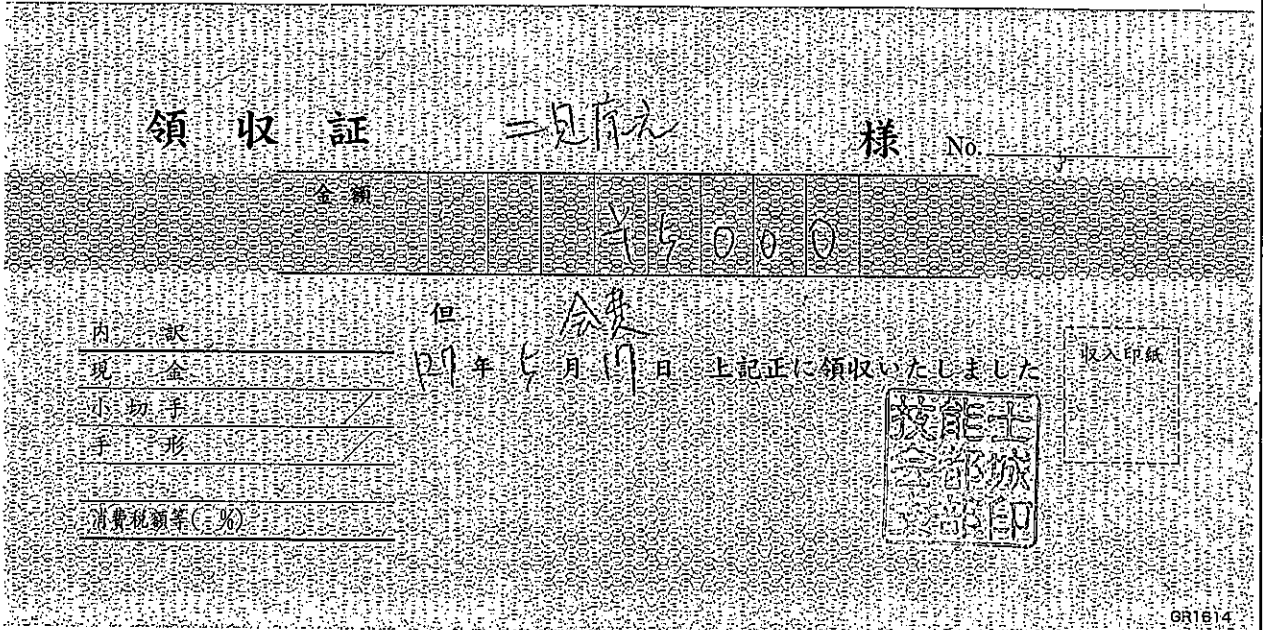 領収証 二見府 様 No.
金額 ¥5000
但 会費
27年5月17日 上記正に領収いたしました
内訳
現金
小切手
手形
消費税額等( %)
収入印紙
技能士
城
部印
GR1614